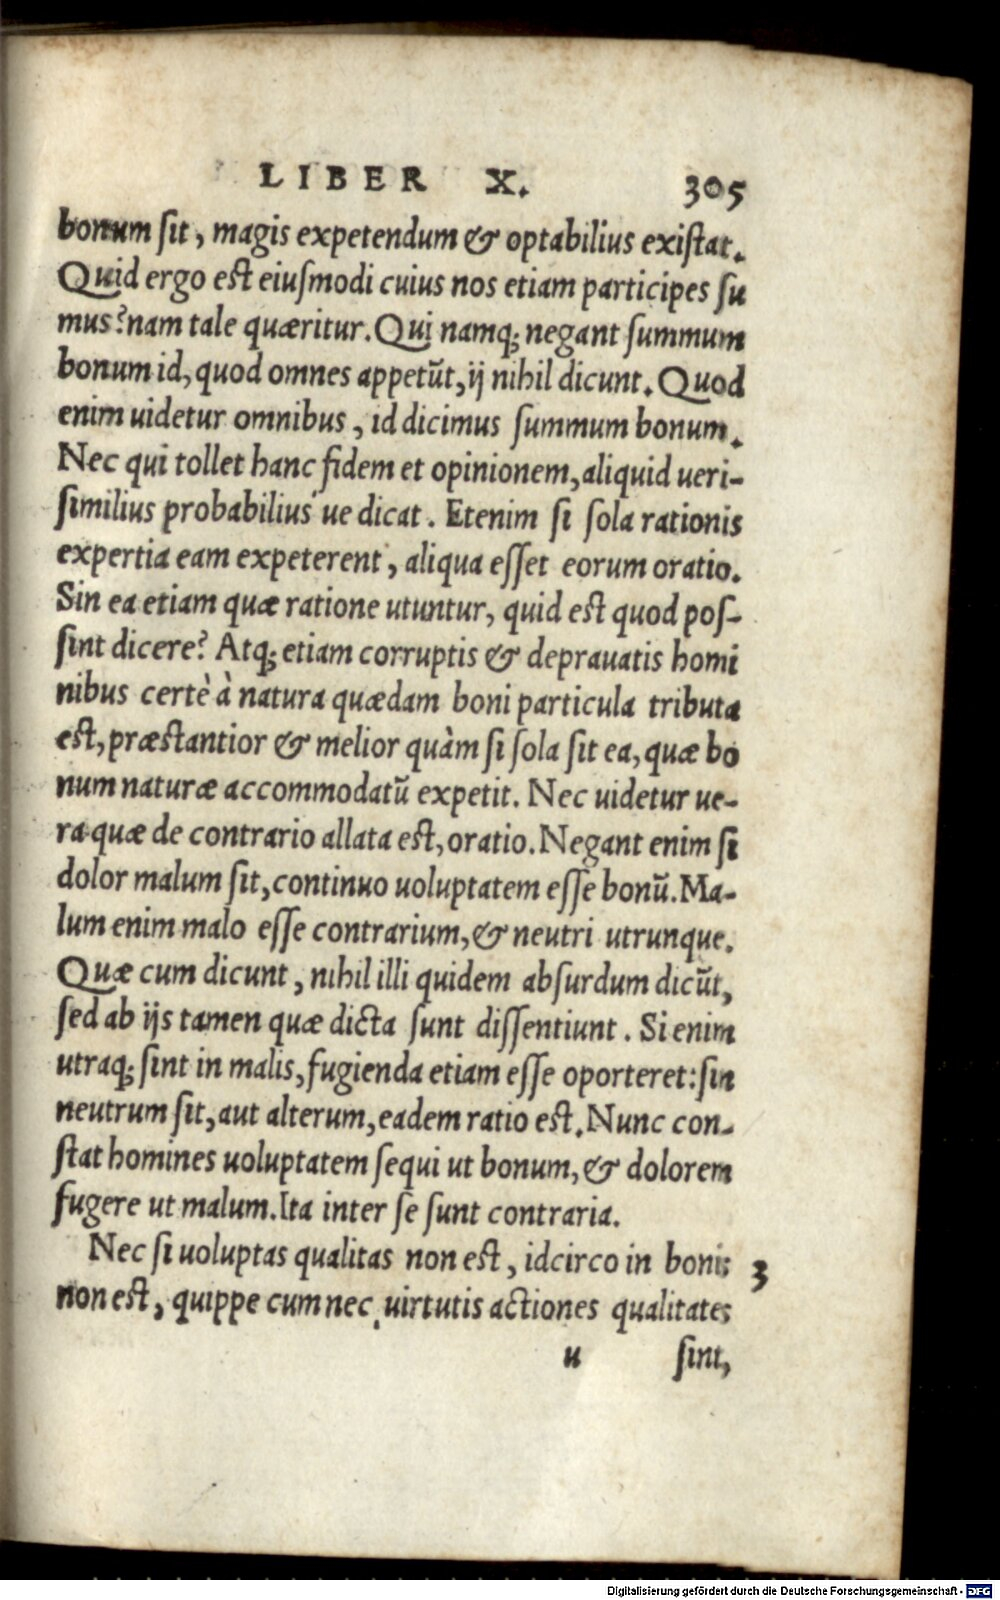 LIBER X. 305
bonum ſit, magis expetendum & optabilius exiſtat.
Quid ergo eſt eiuſmodi cuius nos etiam participes ſu
mus? nam tale quæritur. Qui namq; negant ſummum
bonum id, quod omnes appetūt, ij nihil dicunt. Quod
enim uidetur omnibus, id dicimus ſummum bonum.
Nec qui tollet hanc fidem et opinionem, aliquid ueri-
ſimilius probabilius ue dicat. Etenim ſi ſola rationis
expertia eam expeterent, aliqua eſſet eorum oratio.
Sin ea etiam quæ ratione utuntur, quid eſt quod poſ-
ſint dicere? Atq; etiam corruptis & deprauatis homi
nibus certè à natura quædam boni particula tributa
eſt, præſtantior & melior quàm ſi ſola ſit ea, quæ bo
num naturæ accommodatū expetit. Nec uidetur ue-
ra quæ de contrario allata eſt, oratio. Negant enim ſi
dolor malum ſit, continuo uoluptatem eſſe bonū. Ma-
lum enim malo eſſe contrarium, & neutri utrunque.
Quæ cum dicunt, nihil illi quidem abſurdum dicūt,
ſed ab ijs tamen quæ dicta ſunt diſſentiunt. Si enim
utraq; ſint in malis, fugienda etiam eſſe oporteret: ſin
neutrum ſit, aut alterum, eadem ratio eſt. Nunc con-
ſtat homines uoluptatem ſequi ut bonum, & dolorem
fugere ut malum. Ita inter ſe ſunt contraria.
Nec ſi uoluptas qualitas non eſt, idcirco in bonis 3
non eſt, quippe cum nec uirtutis actiones qualitates
u ſint,
Digitalisierung gefördert durch die Deutsche Forschungsgemeinschaft - DFG